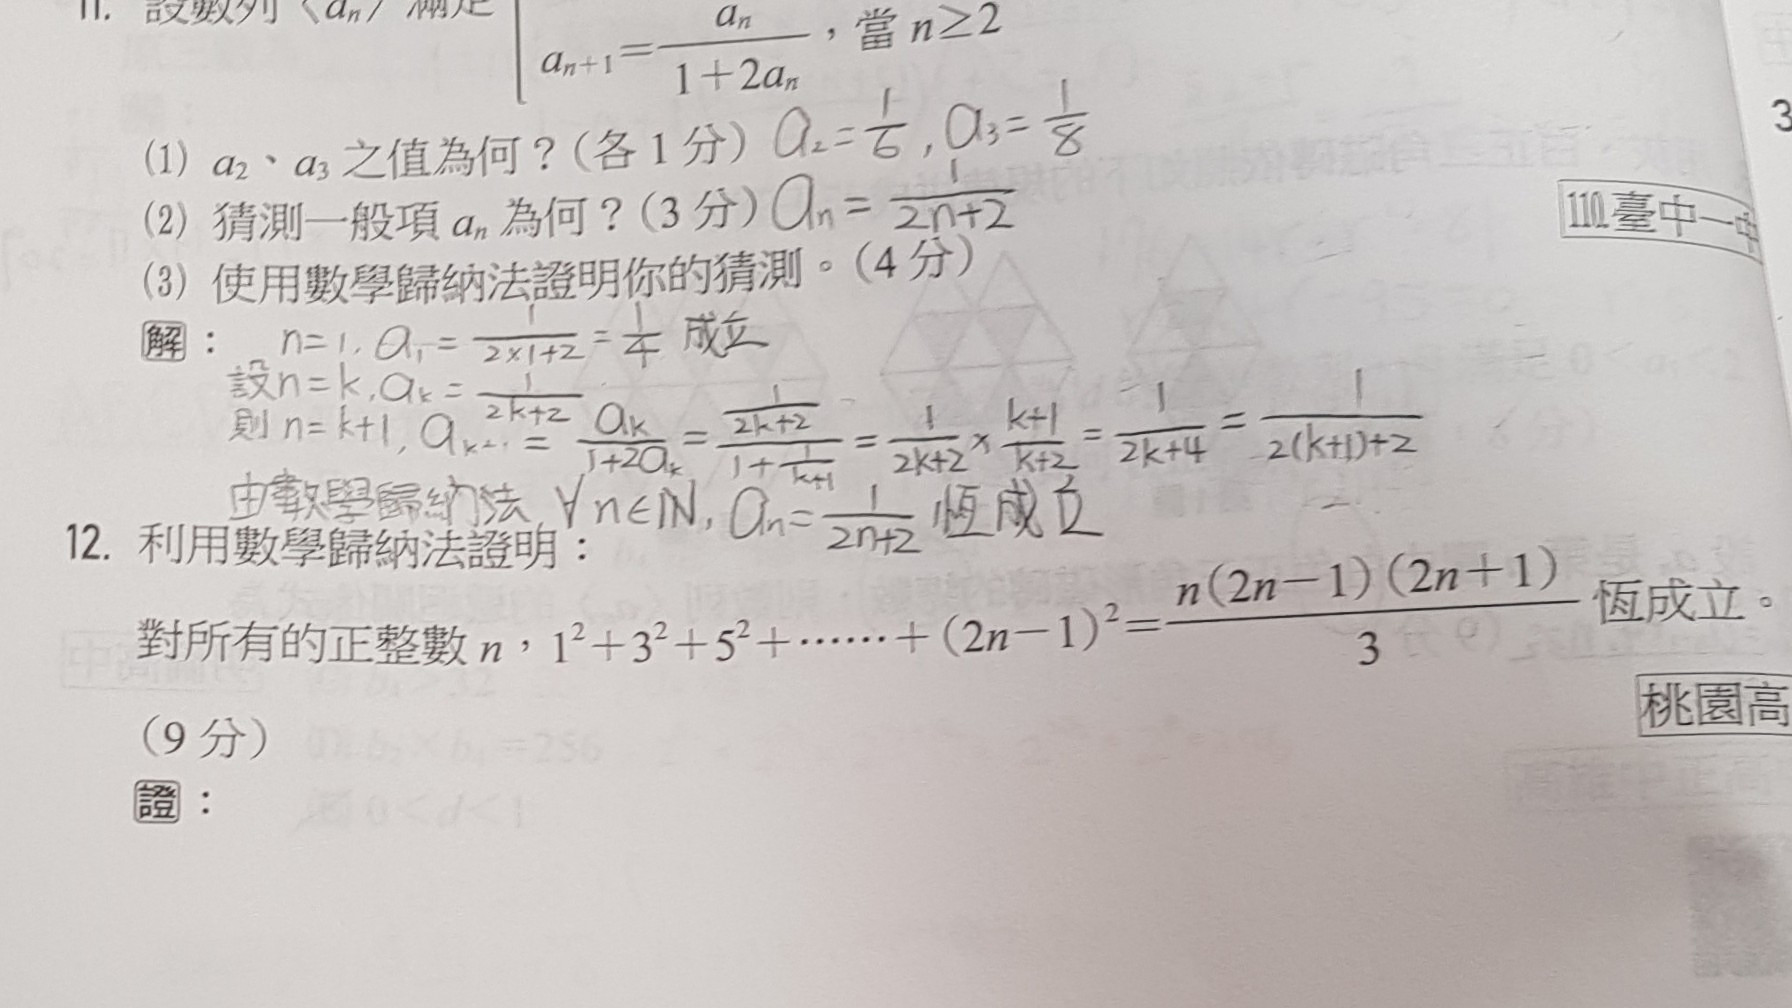 11. 設數列〈aₙ〉滿足
aₙ₊₁=aₙ/(1+2aₙ),當 n≥2
(1) a₂、a₃ 之值為何?(各 1 分) a₂=1/6, a₃=1/8
(2) 猜測一般項 aₙ 為何?(3 分) aₙ=1/(2n+2)
110.臺中一中
(3) 使用數學歸納法證明你的猜測。(4 分)
解: n=1, a₁=1/(2×1+2)=1/4 成立
設n=k, aₖ=1/(2k+2)
則n=k+1, aₖ₊₁=aₖ/(1+2aₖ)=(1/(2k+2))/(1+1/(k+1))=1/(2k+2)×(k+1)/(k+2)=1/(2k+4)=1/(2(k+1)+2)
由數學歸納法 ∀n∈ℕ, aₙ=1/(2n+2) 恆成立
12. 利用數學歸納法證明:
對所有的正整數 n,1²+3²+5²+⋯⋯+(2n−1)²=n(2n−1)(2n+1)/3 恆成立。
桃園高
(9 分)
證:
3